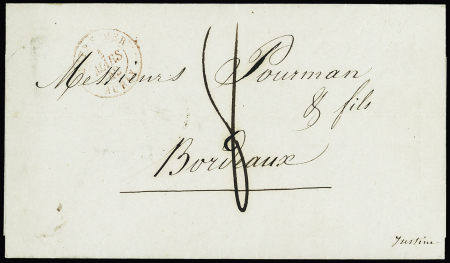 MARS
Messieurs Pourman
& fils
Bordeaux
8
Justine